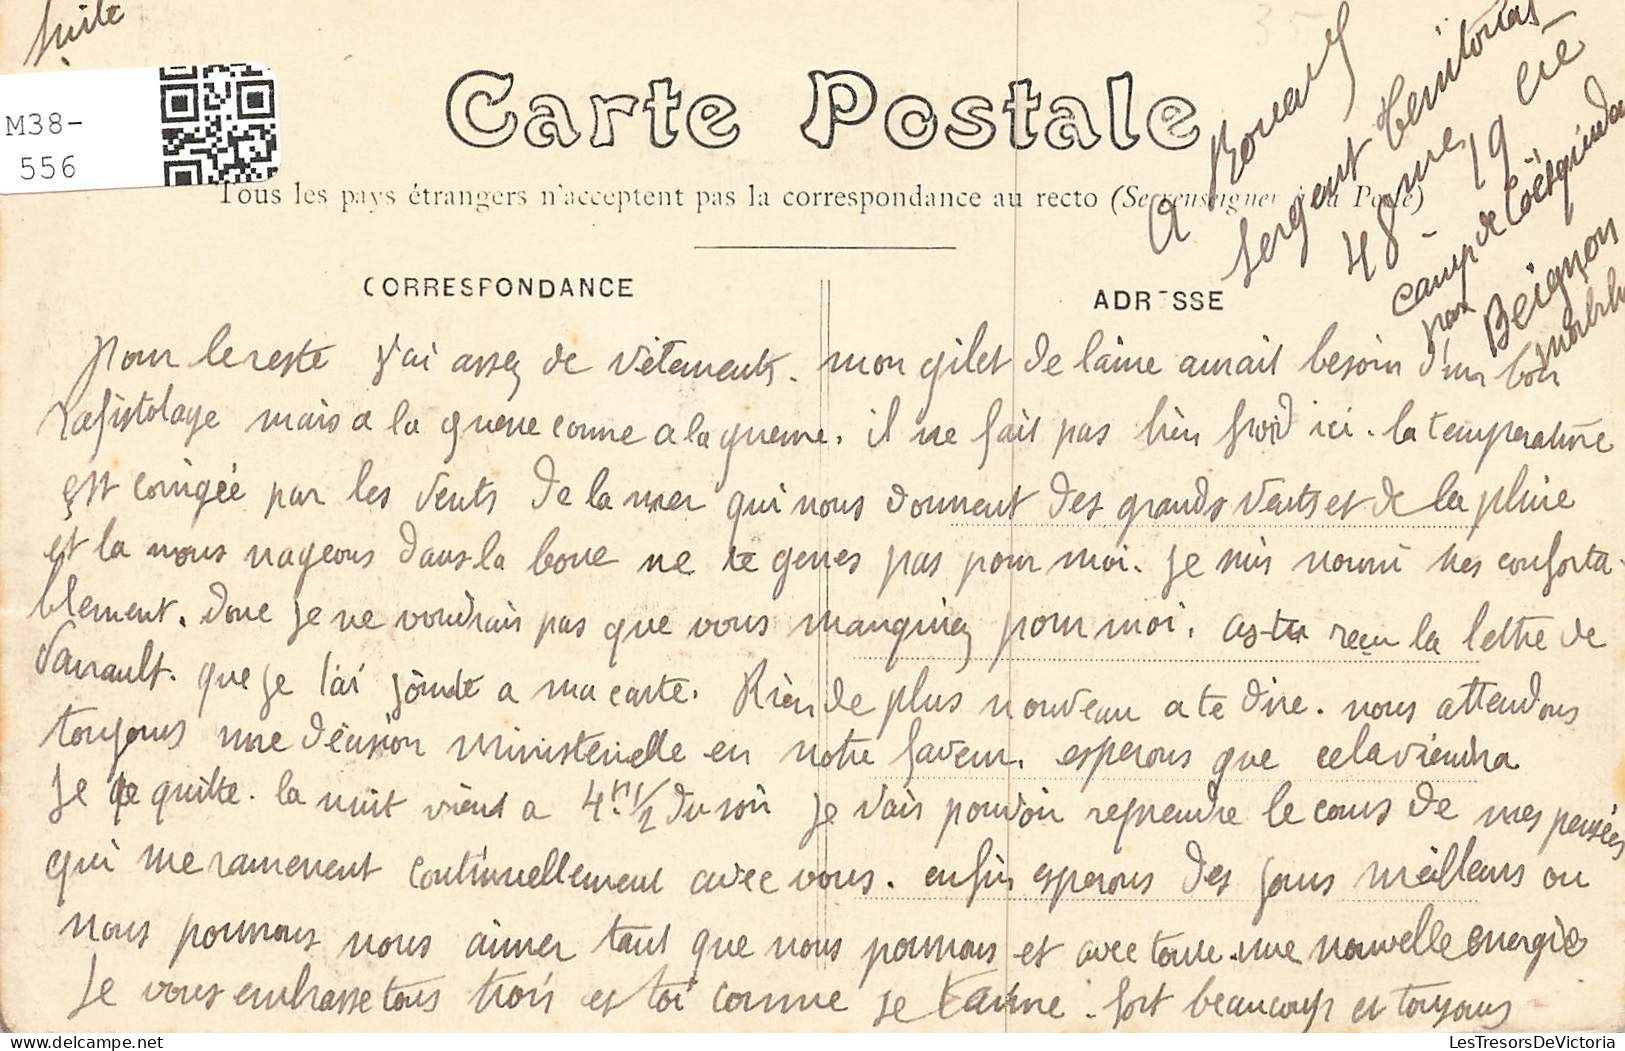 Suite
M38-
556
Carte Postale
Tous les pays étrangers n'acceptent pas la correspondance au recto (Se renseigner à la Poste)
CORRESPONDANCE
ADRESSE
A
Sergent territorial
48eme 19 Cie
camp de Coëtquidan
par Beignon
Morbih
pour le reste j'ai assez de vêtements. mon gilet de laine aurait besoin d'un bon
rafistolage mais a la guerre comme a la guerre. il ne fait pas bien froid ici. la temperature
est corrigée par les vents de la mer qui nous donnent des grands vents et de la pluie
et la nous nageons dans la boue ne te genes pas pour moi. je suis nourri tres conforta-
blement. donc je ne voudrais pas que vous manquiez pour moi. as-tu reçu la lettre de
que je t'ai jointe a ma carte. Rien de plus nouveau a te dire. nous attendons
toujours une décision ministerielle en notre faveur. esperons que cela viendra
Je te quitte. la nuit vient a 4h 1/2 du soir je vais pouvoir reprendre le cours de mes pensées
qui me ramenent continuellement avec vous. enfin esperons des jours meilleurs ou
nous pourrons nous aimer tant que nous pourrons et avec toute une nouvelle energie
Je vous embrasse tous trois et toi comme je t'aime. fort beaucoup et toujours
LesTresorsDeVictoria.com